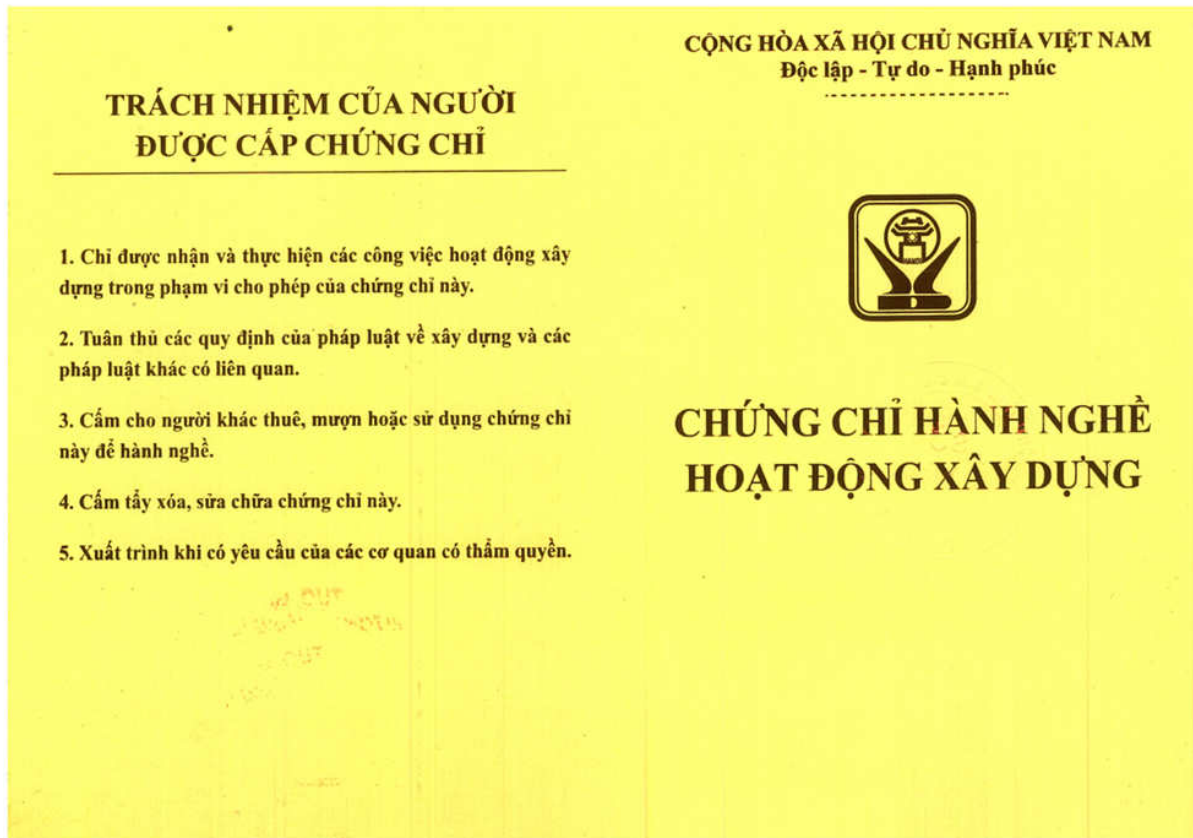 TRÁCH NHIỆM CỦA NGƯỜI
ĐƯỢC CẤP CHỨNG CHỈ
1. Chỉ được nhận và thực hiện các công việc hoạt động xây
dựng trong phạm vi cho phép của chứng chỉ này.
2. Tuân thủ các quy định của pháp luật về xây dựng và các
pháp luật khác có liên quan.
3. Cấm cho người khác thuê, mượn hoặc sử dụng chứng chỉ
này để hành nghề.
4. Cấm tẩy xóa, sửa chữa chứng chỉ này.
5. Xuất trình khi có yêu cầu của các cơ quan có thẩm quyền.
CỘNG HÒA XÃ HỘI CHỦ NGHĨA VIỆT NAM
Độc lập - Tự do - Hạnh phúc
HANOI
CHỨNG CHỈ HÀNH NGHỀ
HOẠT ĐỘNG XÂY DỰNG